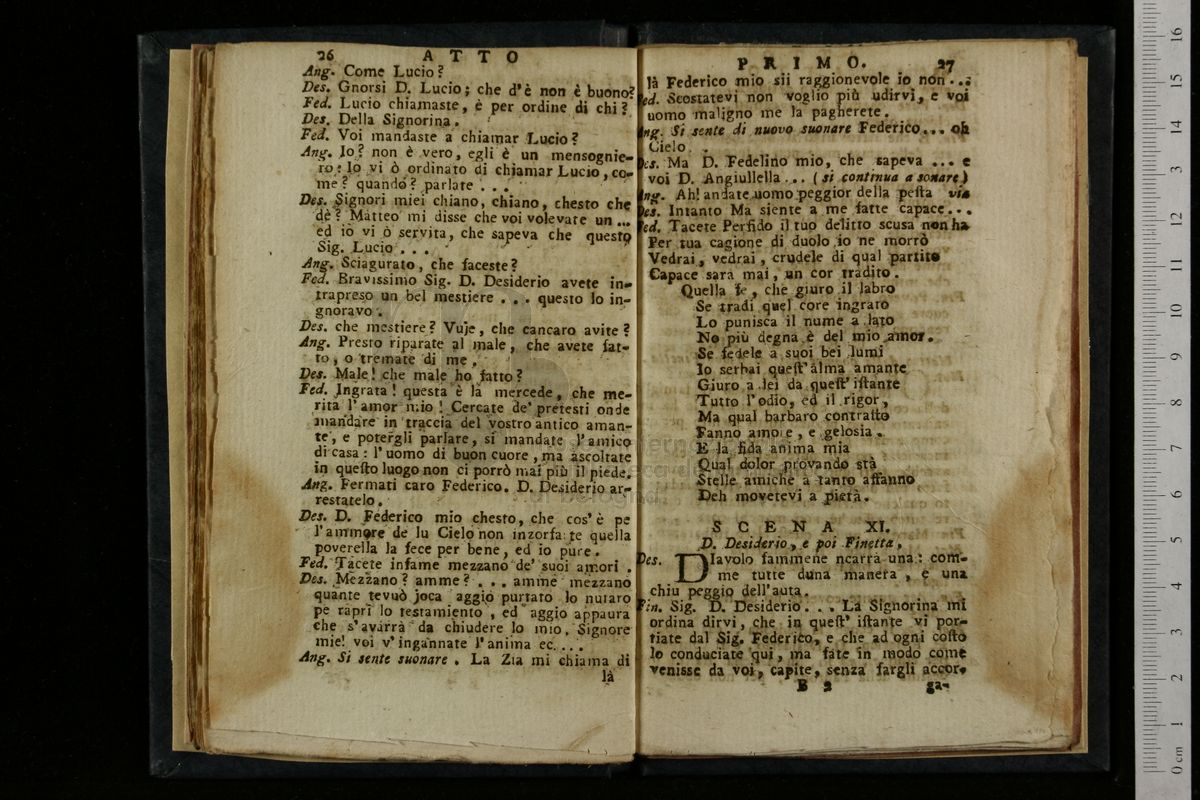 26 ATTO
Ang. Come Lucio?
Des. Gnorsi D. Lucio; che d'è non è buono?
Fed. Lucio chiamaste, è per ordine di chi?
Des. Della Signorina.
Fed. Voi mandaste a chiamar Lucio?
Ang. Io? non è vero, egli è un mensognie-
ro: Io vi ò ordinato di chiamar Lucio, co-
me? quando? parlate ...
Des. Signori miei chiano, chiano, chesto che
dè? Matteo mi disse che voi volevate un ...
ed io vi ò servita, che sapeva che questo
Sig. Lucio ...
Ang. Sciagurato, che faceste?
Fed. Bravissimo Sig. D. Desiderio avete in-
trapreso un bel mestiere ... questo lo in-
gnoravo.
Des. che mestiere? Vuje, che cancaro avite?
Ang. Presto riparate al male, che avete fat-
to, o tremate di me,
Des. Male! che male ho fatto?
Fed. Ingrata! questa è la mercede, che me-
rita l'amor mio! Cercate de' pretesti onde
mandare in traccia del vostro antico aman-
te, e potergli parlare, si mandate l'amico
di casa: l'uomo di buon cuore, ma ascoltate
in queſto luogo non ci porrò mai più il piede.
Ang. Fermati caro Federico. D. Desiderio ar-
restatelo.
Des. D. Federico mio chesto, che cos'è pe
l'ammore de lu Cielo non inzorfate quella
poverella la fece per bene, ed io pure.
Fed. Tacete infame mezzano de' suoi amori.
Des. Mezzano? amme? ... amme mezzano
quante tevuò joca aggio purtato lo nutaro
pe rapri lo testamiento, ed aggio appaura
che s'avarrà da chiudere lo mio. Signore
mie! voi v'ingannate l'anima ec....
Ang. Si sente suonare. La Zia mi chiama di
là
PRIMO. 27
là Federico mio sii raggionevole io non ...
Fed. Scostatevi non voglio più udirvi, e voi
uomo maligno me la pagherete.
Ang. Si sente di nuovo suonare Federico... oh
Cielo.
Des. Ma D. Fedelino mio, che sapeva ... e
voi D. Angiullella ... (si continua a sonare)
Ang. Ah! andate uomo peggior della peſta via
Des. Intanto Ma siente a me fatte capace...
Fed. Tacete Perfido il tuo delitto scusa non ha
Per tua cagione di duolo io ne morrò
Vedrai, vedrai, crudele di qual partito
Capace sarà mai, un cor tradito.
Quella fe, che giuro il labro
Se tradi quel core ingrato
Lo punisca il nume a lato
No più degna è del mio amor.
Se fedele a suoi bei lumi
Io serbai queſt' alma amante
Giuro a lei da queſt' iſtante
Tutto l'odio, ed il rigor,
Ma qual barbaro contraſto
Fanno amore, e gelosia.
E la fida anima mia
Qual dolor provando stà
Stelle amiche a tanto affanno
Deh movetevi a pietà.
SCENA XI.
D. Desiderio, e poi Finetta,
Des. DIavolo fammene ncarrà una: com-
me tutte duna manera, e una
chiu peggio dell'auta.
Fin. Sig. D. Desiderio... La Signorina mi
ordina dirvi, che in queſt' iſtante vi por-
tiate dal Sig. Federico, e che ad ogni coſto
lo conduciate qui, ma fate in modo come
venisse da voi, capite, senza fargli accor-
B 2 ga-
16
15
14
13
12
11
10
9
8
7
6
5
4
3
2
1
0 cm